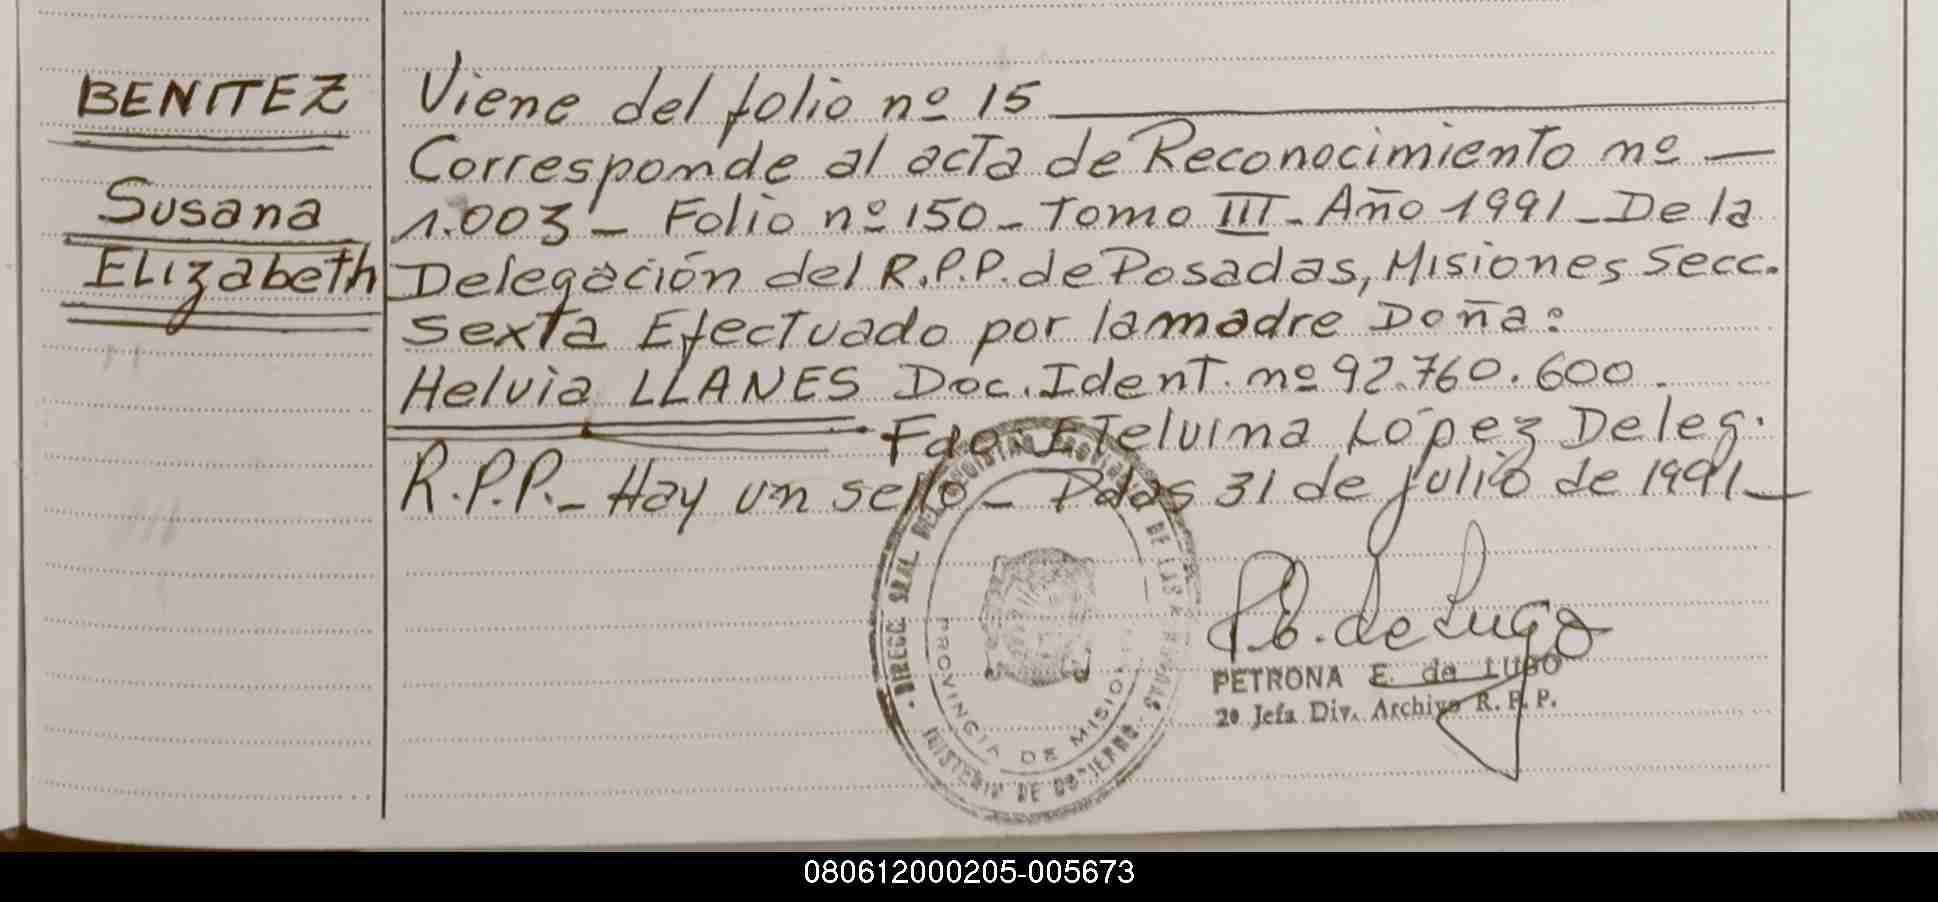 BENITEZ
Susana
Elizabeth
Viene del folio nº 15
Corresponde al acta de Reconocimiento nº —
1.003 – Folio nº 150 – Tomo III – Año 1991 – De la
Delegación del R.P.P. de Posadas, Misiones Secc.
Sexta Efectuado por la madre Doña:
Helvia LLANES Doc. Ident. nº 92.760.600.
Fdo: Etelvina López Deleg.
R.P.P. – Hay un sello – Pdas 31 de julio de 1991 –
P. E. de Lugo
PETRONA E. de LUGO
2º Jefa Div. Archivo R. P. P.
DIRECC. GRAL. DEL REGISTRO PROVINCIAL DE LAS PERSONAS
MINISTERIO DE GOBIERNO
PROVINCIA DE MISIONES
080612000205-005673